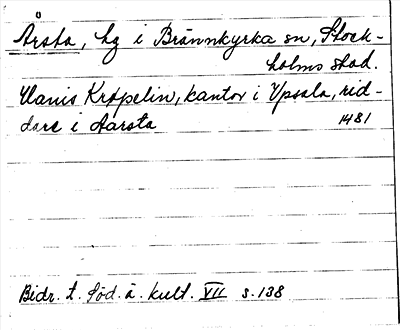 Årsta, hg i Brännkyrka sn, Stock-
holms stad.
Clanis Kröpelin, kantor i Upsala, rid-
dare i Aarsta 1481
Bidr. t. Söd. ä. kult. VII s. 138